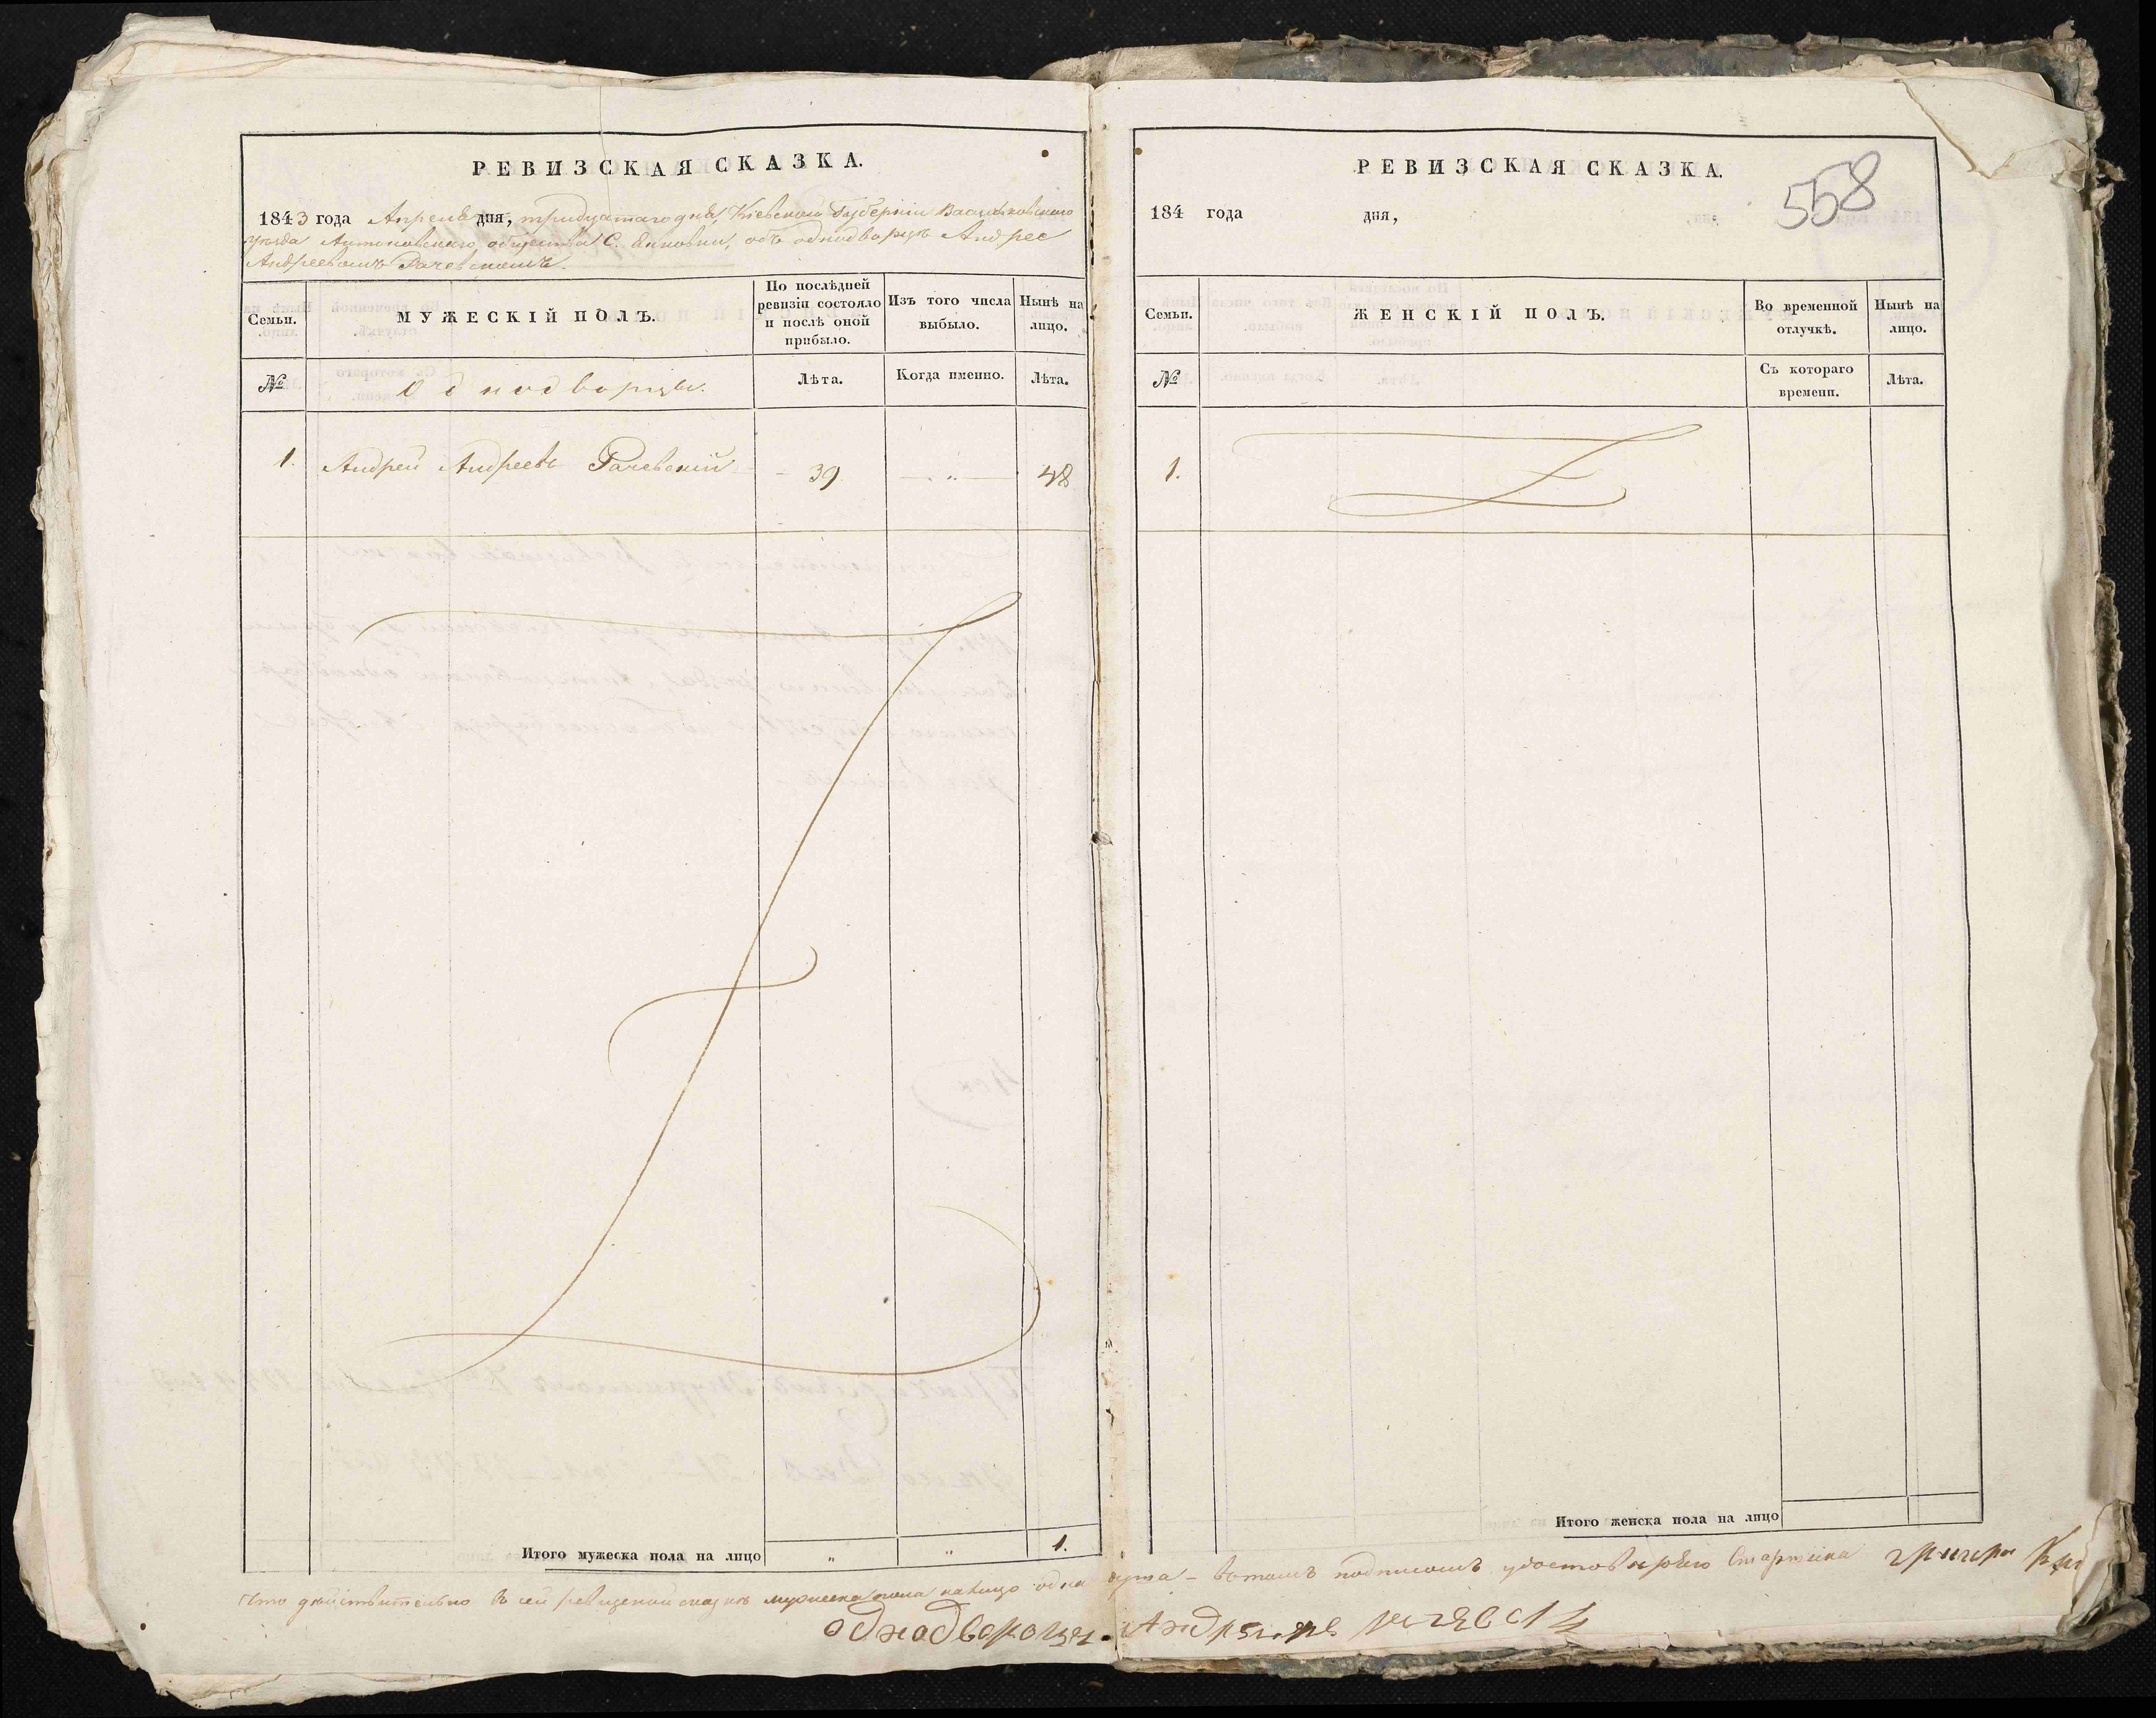 РЕВИЗСКАЯ СКАЗКА.
1843 года Апреля дня, тридцатаго дня Кіевской Губерніи Васильковскаго
уѣзда Антоновскаго общества С. объ однодворцѣ Андрее
Андреевомъ Рачевскомъ.
Семьи.
МУЖЕСКІЙ ПОЛЪ.
По послѣдней ревизіи состояло и послѣ оной прибыло.
Изъ того числа выбыло.
Нынѣ на лицо.
№
Однодворцы.
Лѣта.
Когда именно.
Лѣта.
1. Андрей Андреевъ Рачевскій - 39 — „ — 48
Итого мужеска пола на лицо „ „ 1.
РЕВИЗСКАЯ СКАЗКА.
558
184 года дня,
Семьи.
ЖЕНСКІЙ ПОЛЪ.
Во временной отлучкѣ.
Нынѣ на лицо.
№
Съ котораго времени.
Лѣта.
1.
Итого женска пола на лицо
Что дѣйствительно въ сей ревизской сказкѣ мужеска пола налицо одна душа – въ томъ подписомъ удостовѣряю